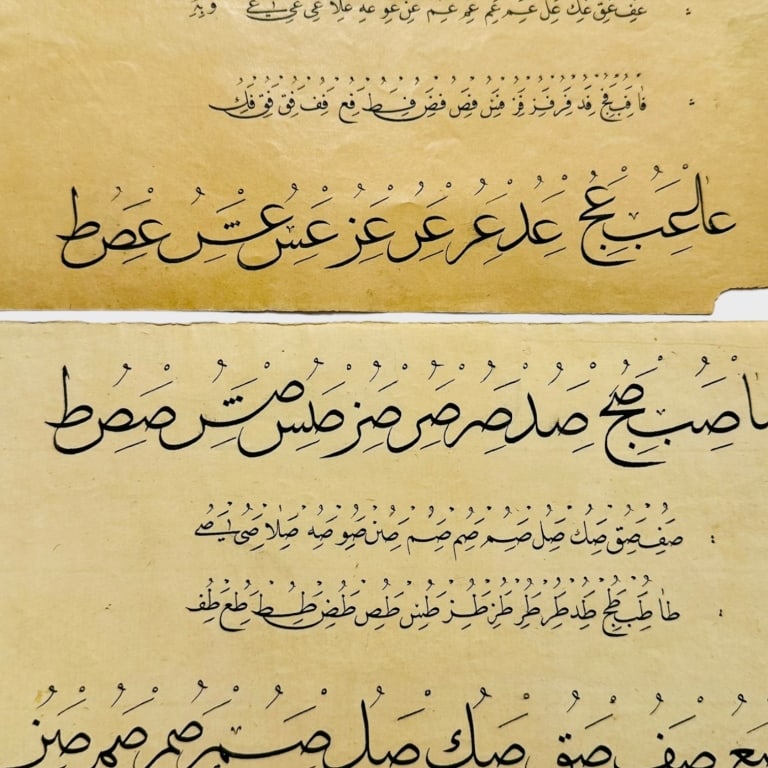 عف عق عك عل عم عم عم عم عن عو عه علا عى
فا فب فج فد فر فر فز فس فص فض فط فع فف فق فق فك
عا عب عج عد عر عر عز عس عش عص ط
صا صب صج صد صر صر صز صس صش صص ط
صف صق صك صل صم صم صم صن صو صه صلا صى
طا طب طج طد طر طر طز طس طص طض طط طع طف
صع صف صق صك صل صم صم صم صن